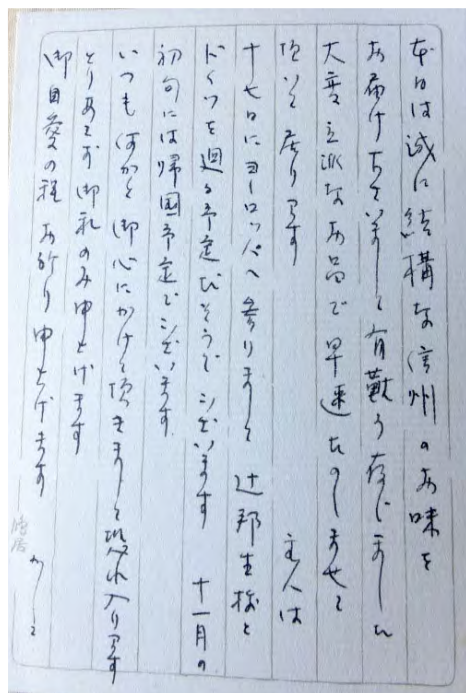 本日は誠に結構な信州のお味を
お届け下さいまして有難う存じました
大変立派なお品で早速たのしませて
頂いて居ります　　主人は
十七日にヨーロッパへ参りまして　辻邦生様と
ドイツを廻る予定だそうでございます　十一月の
初旬には帰国予定でございます
いつも何かと御心にかけて頂きまして恐れ入ります
とりあえず御礼のみ申上げます
御自愛の程お祈り申上げます　かしこ